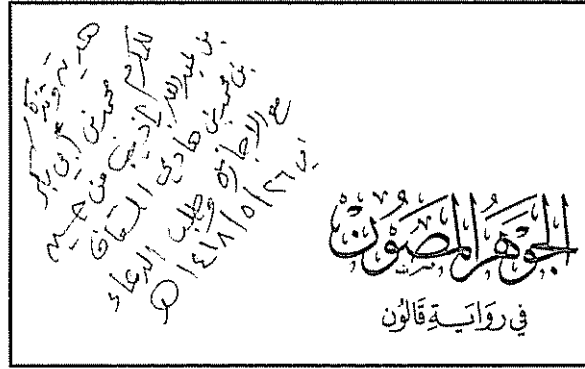 هدية وتذكرة
للمكرم محمد بن أبي بكر
بن عبدالله باذيب من
بن محمد بن هادي السقاف
مع الإجازة وطلب الدعاء
في ٢٦/٥/١٤١٨
الجَوْهَرُ المَصُوْنُ
في رِوَايَةِ قَالُوْن